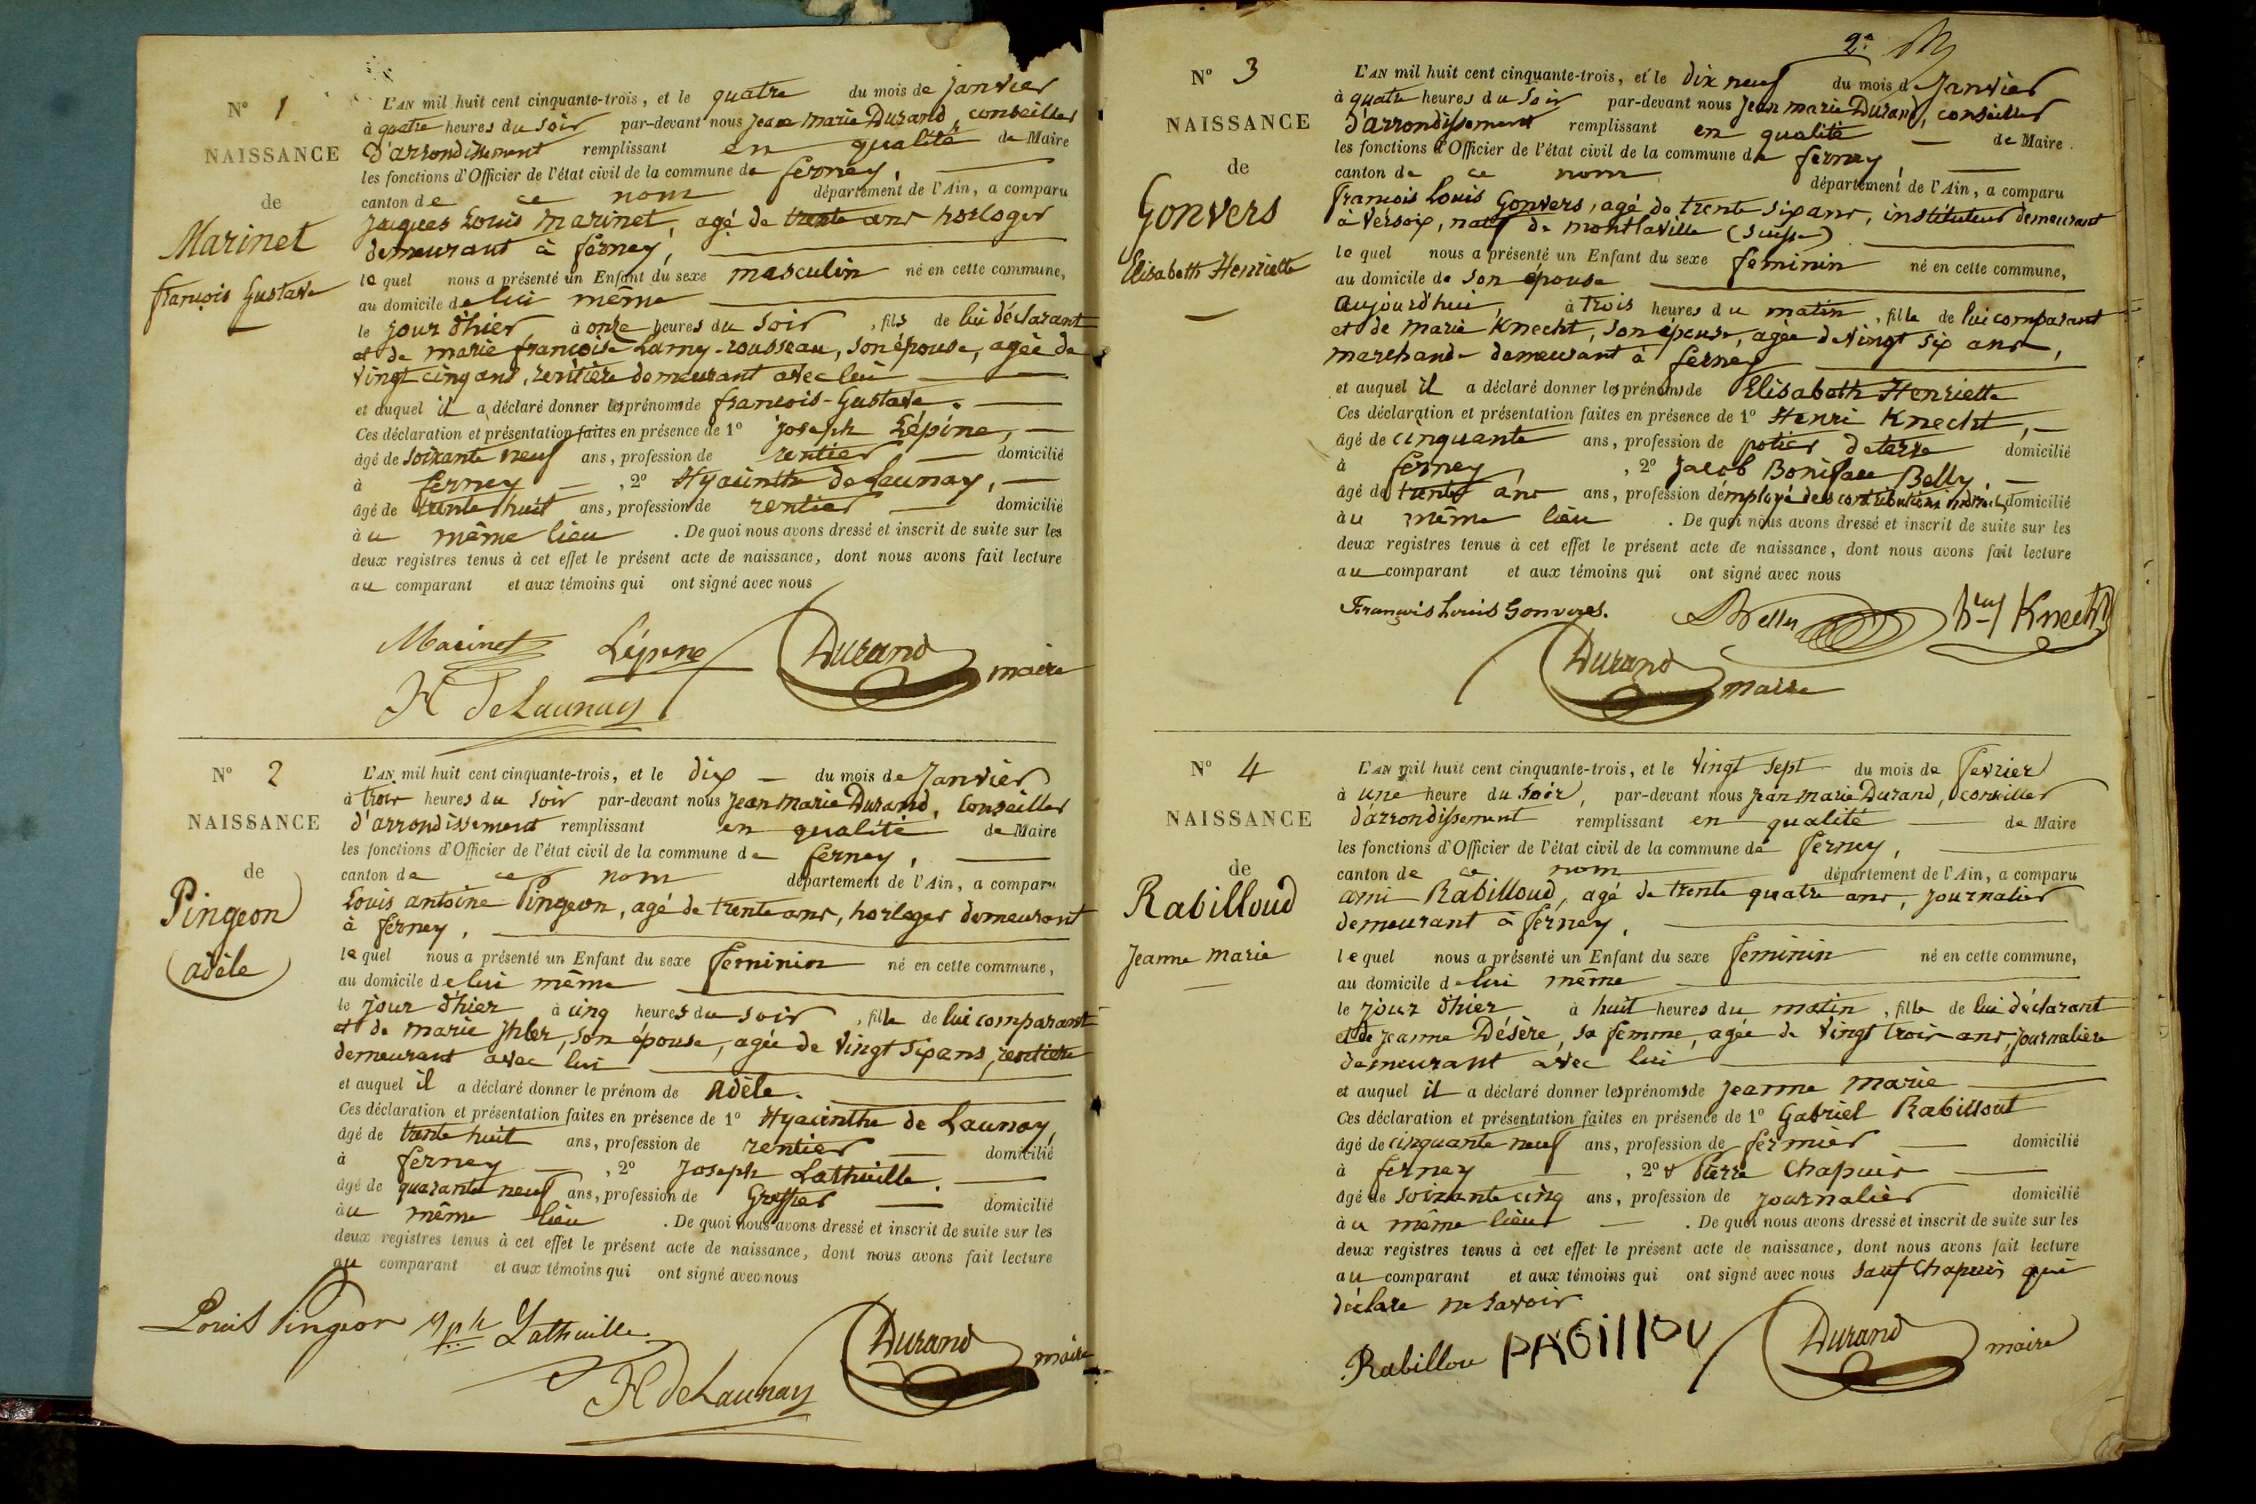 N° 1
NAISSANCE
de
Marinet
françois Gustave
L'AN mil huit cent cinquante-trois, et le quatre du mois de janvier
à quatre heures du soir par-devant nous jean marie Durand, conseiller
D'arrondissement remplissant en qualité de Maire
les fonctions d'Officier de l'état civil de la commune de ferney,
canton de ce nom département de l'Ain, a comparu
jacques Louis marinet, agé de trente ans horloger
demeurant à ferney,
le quel nous a présenté un Enfant du sexe masculin né en cette commune,
au domicile de lui même
le jour d'hier, à onze heures du soir, fils de lui déclarant
et de marie françoise Lamy-rousseau, son épouse, agée de
vingt cinq ans, rentière demeurant avec lui
et auquel il a déclaré donner les prénoms de françois-Gustave.
Ces déclaration et présentation faites en présence de 1° joseph Lépine,
âgé de soixante neuf ans, profession de rentier domicilié
à ferney, 2° Hyacinthe de Launay,
âgé de trente huit ans, profession de rentier domicilié
à u même lieu. De quoi nous avons dressé et inscrit de suite sur les
deux registres tenus à cet effet le présent acte de naissance, dont nous avons fait lecture
au comparant et aux témoins qui ont signé avec nous
Marinet Lépine Durand maire
H de Launay
N° 2
NAISSANCE
de
Pingeon
adèle
L'AN mil huit cent cinquante-trois, et le dix du mois de Janvier
à trois heures du soir par-devant nous jean marie Durand, conseiller
d'arrondissement remplissant en qualité de Maire
les fonctions d'Officier de l'état civil de la commune de ferney,
canton de ce nom département de l'Ain, a comparu
Louis antoine Pingeon, agé de trente ans, horloger demeurant
à ferney,
le quel nous a présenté un Enfant du sexe feminin né en cette commune,
au domicile de lui même
le jour d'hier à cinq heures du soir, fille de lui comparant
et de marie son épouse, agée de vingt six ans, rentière
demeurant avec lui
et auquel il a déclaré donner le prénom de Adèle.
Ces déclaration et présentation faites en présence de 1° Hyacinthe de Launay,
âgé de trente huit ans, profession de rentier domicilié
à ferney, 2° Joseph Lathuille.
âgé de quarante neuf ans, profession de Greffier domicilié
àu même lieu. De quoi nous avons dressé et inscrit de suite sur les
deux registres tenus à cet effet le présent acte de naissance, dont nous avons fait lecture
au comparant et aux témoins qui ont signé avec nous
Louis Pingeon Jph Lathuille Durand maire
H de Launay
2e
N° 3
NAISSANCE
de
Gonvers
Elisabeth Henriette
L'AN mil huit cent cinquante-trois, et le dix neuf du mois d Janvier
à quatre heures du soir par-devant nous jean marie Durand, conseiller
d'arrondissement remplissant en qualité de Maire.
les fonctions d'Officier de l'état civil de la commune de ferney,
canton de ce nom département de l'Ain, a comparu
françois Louis Gonvers, agé de trente six ans, instituteur demeurant
à Versoix, natif de montlaville (suisse)
le quel nous a présenté un Enfant du sexe feminin né en cette commune,
au domicile de son épouse
aujourd'hui, à trois heures du matin, fille de lui comparant
et de marie Knecht, son épouse, agée de vingt six ans,
marchande demeurant à ferney
et auquel il a déclaré donner les prénoms de Elisabeth Henriette
Ces déclaration et présentation faites en présence de 1° Henri Knecht,
âgé de cinquante ans, profession de potier de terre domicilié
à ferney, 2° Jacob Boniface Belly,
âgé de trente ans ans, profession d'employé des contributions indirectes domicilié
àu même lieu. De quoi nous avons dressé et inscrit de suite sur les
deux registres tenus à cet effet le présent acte de naissance, dont nous avons fait lecture
au comparant et aux témoins qui ont signé avec nous
François Louis Gonvers. Belly Hri Knecht
Durand maire
N° 4
NAISSANCE
de
Rabilloud
Jeanne marie
L'AN mil huit cent cinquante-trois, et le vingt sept du mois de fevrier
à une heure du soir, par-devant nous jean marie Durand, conseiller
d'arrondissement remplissant en qualité de Maire
les fonctions d'Officier de l'état civil de la commune de ferney,
canton de ce nom département de l'Ain, a comparu
ami Rabilloud, agé de trente quatre ans, journalier
demeurant à ferney,
le quel nous a présenté un Enfant du sexe feminin né en cette commune,
au domicile de lui même
le jour d'hier à huit heures du matin, fille de lui déclarant
et de jeanne Désère, sa femme, agée de vingt trois ans, journalière
demeurant avec lui
et auquel il a déclaré donner les prénoms de jeanne marie
Ces déclaration et présentation faites en présence de 1° Gabriel Rabillout
âgé de cinquante neuf ans, profession de fermier domicilié
à ferney, 2° Pierre Chapuis
âgé de soixante cinq ans, profession de journalier domicilié
à u même lieu. De quoi nous avons dressé et inscrit de suite sur les
deux registres tenus à cet effet le présent acte de naissance, dont nous avons fait lecture
au comparant et aux témoins qui ont signé avec nous sauf Chapuis qui
déclare ne savoir
Rabillou PAGillOU Durand maire